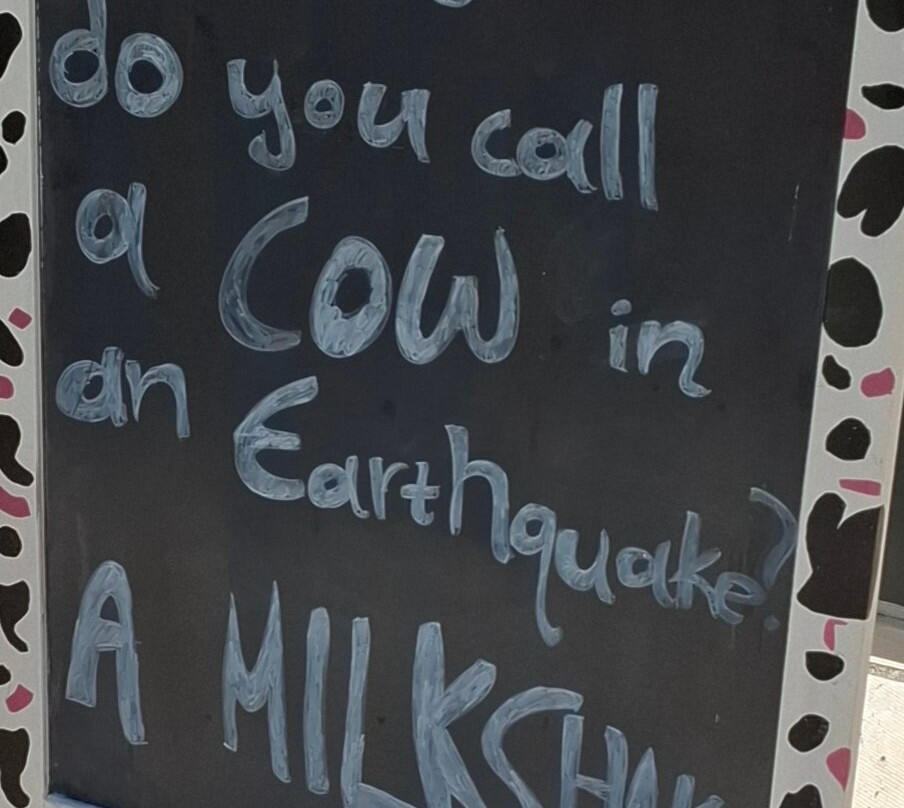 do you call
a COW in
an Earthquake?
A MILKSHAK